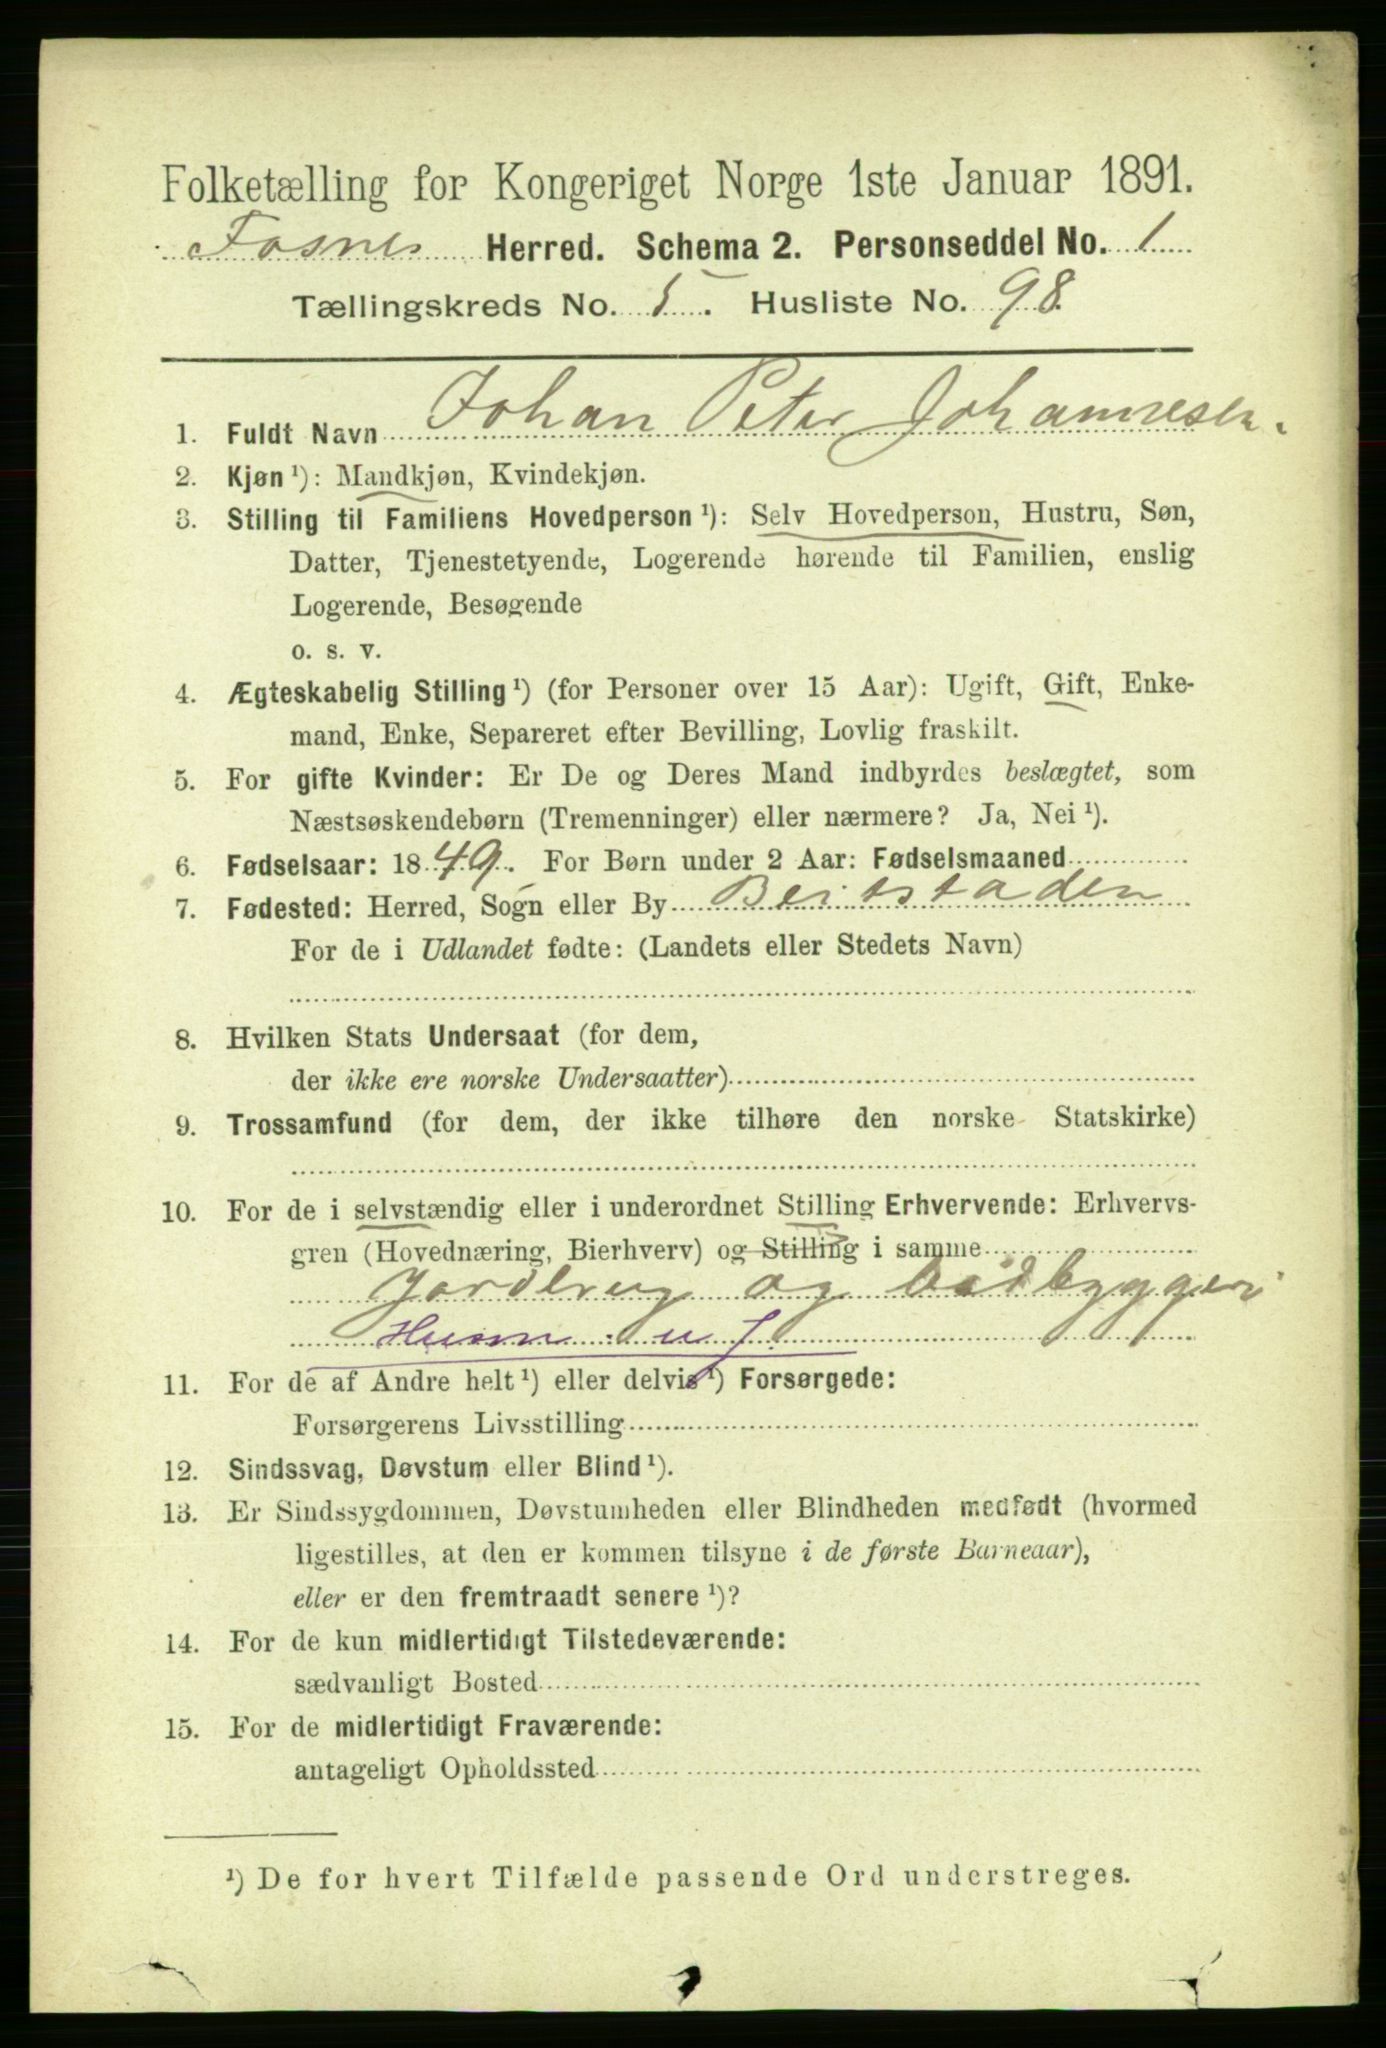 Folketælling for Kongeriget Norge 1ste Januar 1891.
Fosnes Herred. Schema 2. Personseddel No. 1
Tællingskreds No. 5. Husliste No. 98.
1. Fuldt Navn Johan Peter Johannesen.
2. Kjøn ¹): Mandkjøn, Kvindekjøn.
3. Stilling til Familiens Hovedperson ¹): Selv Hovedperson, Hustru, Søn,
Datter, Tjenestetyende, Logerende hørende til Familien, enslig
Logerende, Besøgende
o. s. v.
4. Ægteskabelig Stilling ¹) (for Personer over 15 Aar): Ugift, Gift, Enke-
mand, Enke, Separeret efter Bevilling, Lovlig fraskilt.
5. For gifte Kvinder: Er De og Deres Mand indbyrdes beslægtet, som
Næstsøskendebørn (Tremenninger) eller nærmere? Ja, Nei ¹).
6. Fødselsaar: 1849. For Børn under 2 Aar: Fødselsmaaned
7. Fødested: Herred, Sogn eller By Beitstaden
For de i Udlandet fødte: (Landets eller Stedets Navn)
8. Hvilken Stats Undersaat (for dem,
der ikke ere norske Undersaatter)
9. Trossamfund (for dem, der ikke tilhøre den norske Statskirke)
10. For de i selvstændig eller i underordnet Stilling Erhvervende: Erhvervs-
gren (Hovednæring, Bierhverv) og Stilling i samme
Jordbrug og baadbyggeri
Husm. u J
11. For de af Andre helt ¹) eller delvis ¹) Forsørgede:
Forsørgerens Livsstilling
12. Sindssvag, Døvstum eller Blind ¹).
13. Er Sindssygdommen, Døvstumheden eller Blindheden medfødt (hvormed
ligestilles, at den er kommen tilsyne i de første Barneaar),
eller er den fremtraadt senere ¹)?
14. For de kun midlertidigt Tilstedeværende:
sædvanligt Bosted
15. For de midlertidigt Fraværende:
antageligt Opholdssted
¹) De for hvert Tilfælde passende Ord understreges.